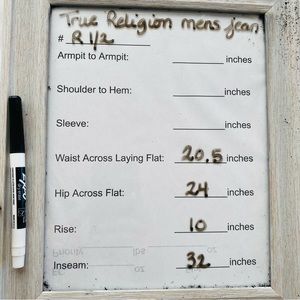 True Religion mens jean
# R 1/2
Armpit to Armpit: ________ inches
Shoulder to Hem: ________ inches
Sleeve: ________ inches
Waist Across Laying Flat: 20.5 inches
Hip Across Flat: 24 inches
Rise: 10 inches
Inseam: 32 inches